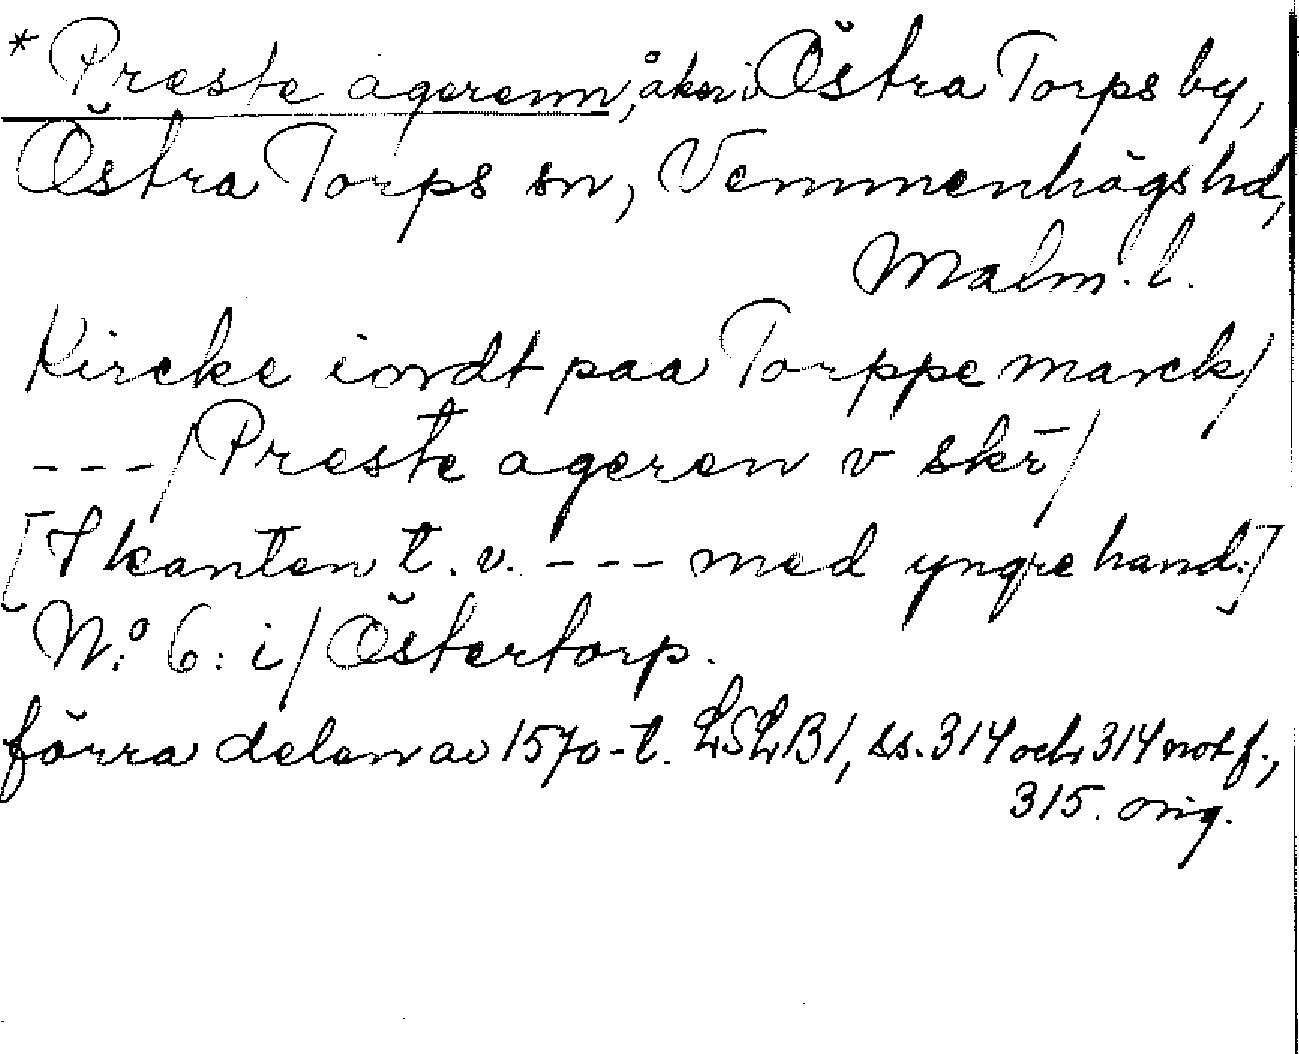 * Preste agerenn, åker i Östra Torps by,
Östra Torps sn, Vemmenhögs hd,
Malm. l.
Kircke iordt paa Torppe marck/
---/Preste ageren v skr̄/
[I kanten t. v. --- med yngre hand:]
N:o 6: i/Östertorp.
förra delen av 1570-t. LSLB 1, ss. 314 och 314 not f.,
315. orig.